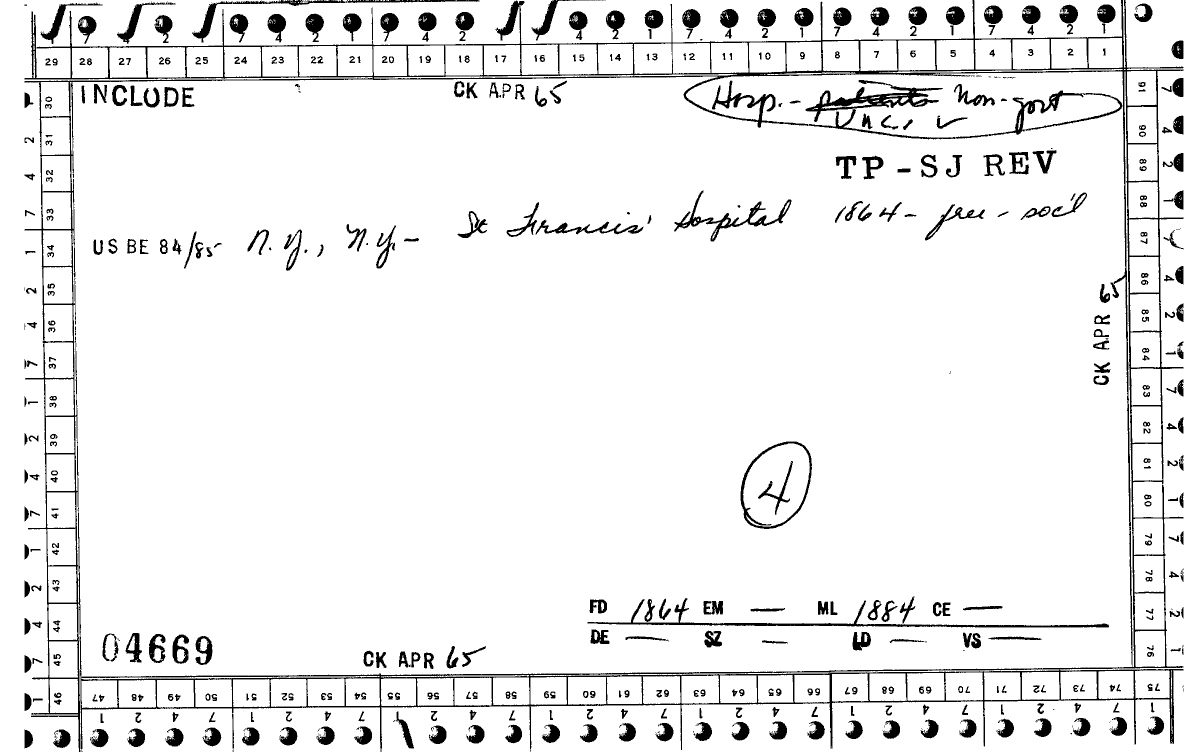 7 4 2 1 7 4 2 7 4 2 1 7 4 2 1 7 4 2 1
29 28 27 26 25 24 23 22 21 20 19 18 17 16 15 14 13 12 11 10 9 8 7 6 5 4 3 2 1
INCLUDE
CK APR 65
Hosp. - patients Non-govt
Unc. ✓
TP-SJ REV
US BE 84/85 N.Y., N.Y. - St Francis' Hospital 1864 - free - soc'l
CK APR 65
4
FD 1864 EM — ML 1884 CE —
DE — SZ — LD — VS —
04669
CK APR 65
30 31 32 33 34 35 36 37 38 39 40 41 42 43 44 45 46
1 2 4 7 1 2 4 7 1 2 4 7 1 2 4 7 1
91 90 89 88 87 86 85 84 83 82 81 80 79 78 77 76
47 48 49 50 51 52 53 54 55 56 57 58 59 60 61 62 63 64 65 66 67 68 69 70 71 72 73 74 75
1 2 4 7 1 2 4 7 2 4 7 1 2 4 7 1 2 4 7 1 2 4 7 1 2 4 7 1